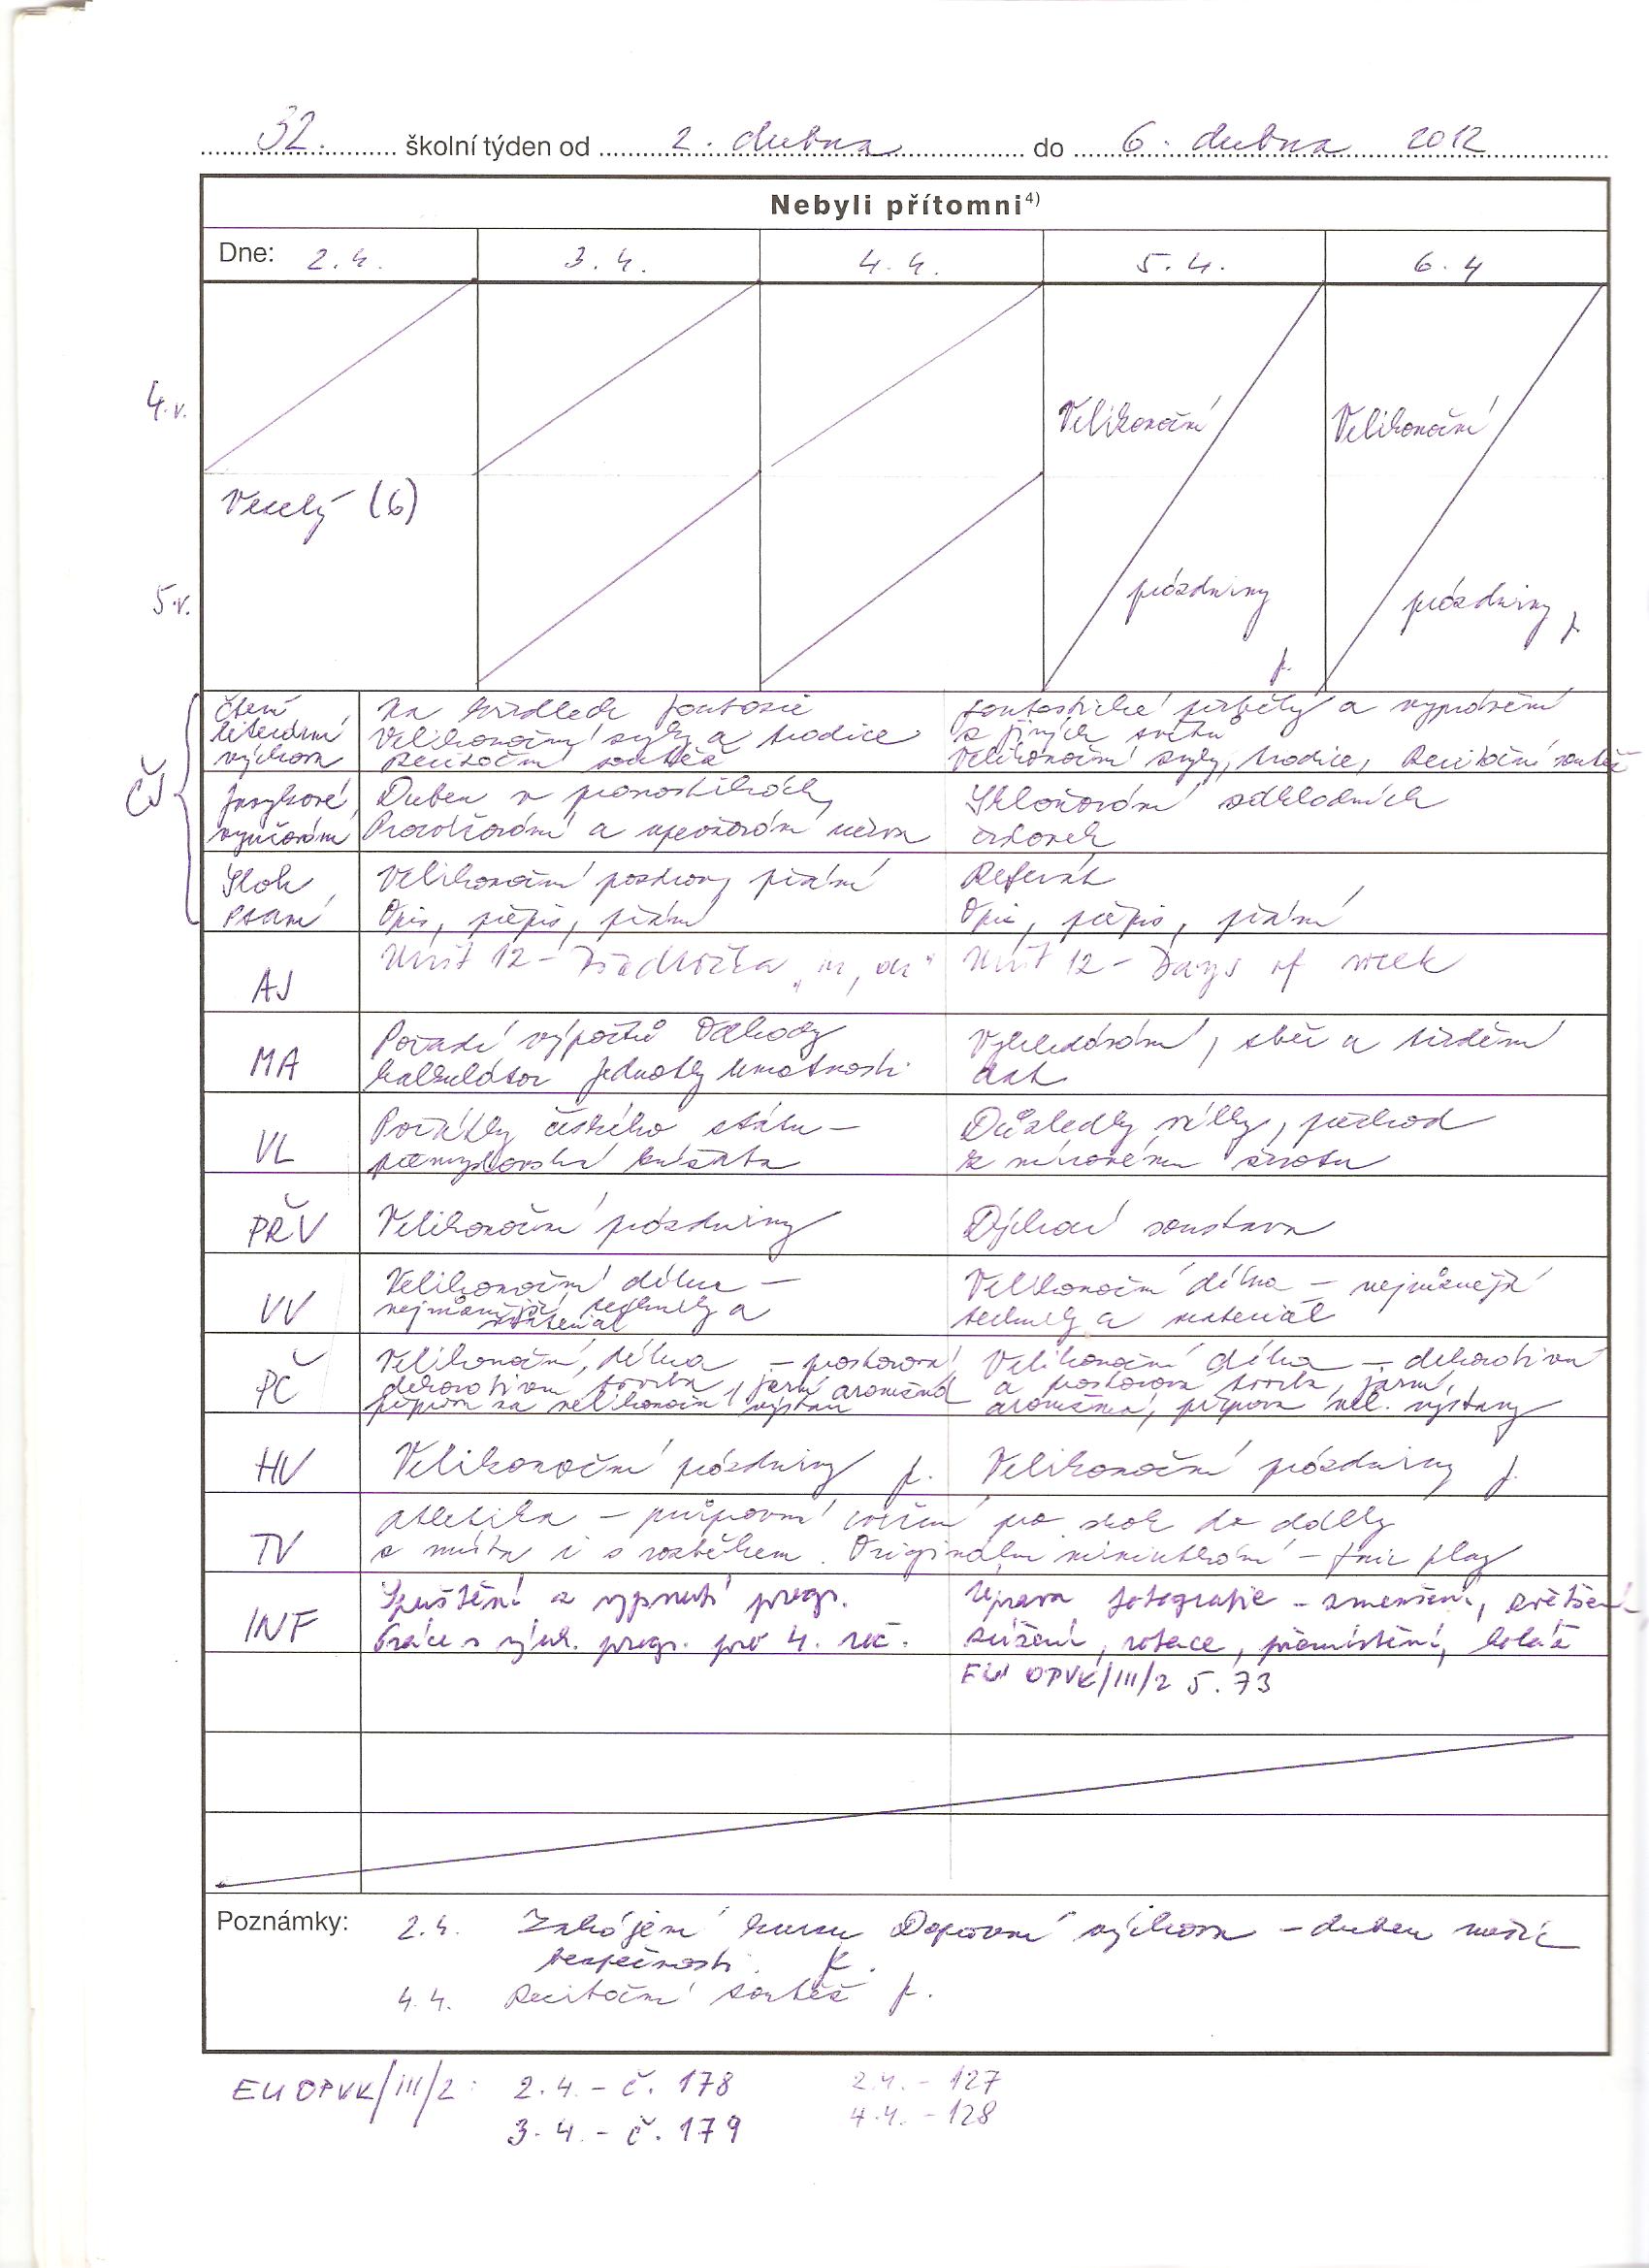 32. školní týden od 2. dubna do 6. dubna 2012
Nebyli přítomni4)
Dne: 2.4. 3.4. 4.4. 5.4. 6.4
4.r. Velikonoční Velikonoční
Veselý (6)
5.r. prázdniny prázdniny
ČJ
Čtení Na křídlech fantazie fantastické příběhy a vyprávění
literární Velikonoční zvyky a tradice z jiných světů
výchova Recitační soutěž Velikonoční zvyky, tradice, Recitační soutěž
Jazykové Duben v pranostikách, Skloňování základních
vyučování Procvičování a upevňování učiva číslovek
Sloh Velikonoční pozdravy přání Referát
Psaní Opis, přepis, přání Opis, přepis, přání
AJ Unit 12 - "in, on" Unit 12 - Days of week
MA Pořadí výpočtů Odhady Vyhledávání, sběr a třídění
kalkulátor Jednotky hmotnosti dat
VL Počátky českého státu - Důsledky války, přechod
přemyslovská knížata k mírovému životu
PŘV Velikonoční prázdniny Dýchací soustava
VV Velikonoční dílna - Velikonoční dílna - nejrůznější
nejrůznější techniky a techniky a materiál
materiál
PČ Velikonoční dílna - prostorová Velikonoční dílna - dekorativní
dekorativní tvorba, jarní aranžmá a prostorová tvorba, jarní
příprava na velikonoční výstavu aranžmá, příprava vel. výstavy
HV Velikonoční prázdniny Velikonoční prázdniny
TV Atletika - průpravná cvičení pro skok do dálky
z místa i s rozběhem. Originální - fair play
INF Spuštění a vypnutí progr. Úprava fotografie - zmenšení, zvětšení
Práce s výuk. progr. pro 4. roč. zúžení, rotace, přemístění, koláž
EU OPVK/III/2 5.73
Poznámky: 2.4. Zahájení kurzu Dopravní výchova - duben měsíc
bezpečnosti.
4.4. Recitační soutěž
EU OPVK/III/2: 2.4. - č. 178 2.4. - 127
3.4. - č. 179 4.4. - 128